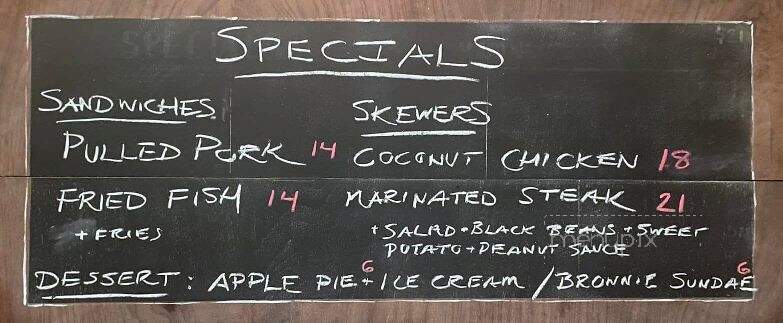 SPECIALS
SANDWICHES
PULLED PORK 14
FRIED FISH 14
+ FRIES
SKEWERS
COCONUT CHICKEN 18
MARINATED STEAK 21
+ SALAD + BLACK BEANS + SWEET
POTATO + PEANUT SAUCE
DESSERT: APPLE PIE + ICE CREAM 6 / BROWNIE SUNDAE 6
menupix